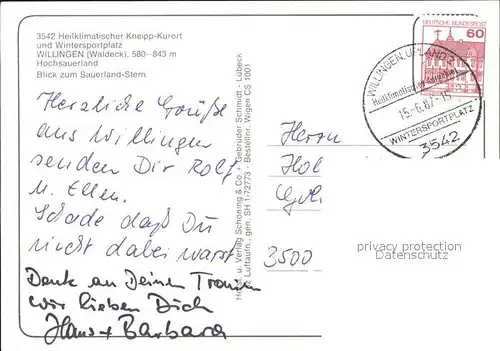 3542 Heilklimatischer Kneipp-Kurort
und Wintersportplatz
WILLINGEN (Waldeck), 580–843 m
Hochsauerland
Blick zum Sauerland-Stern
Herzliche Grüße
aus Willingen
senden Dir Rolf
u. Ellen.
Schade daß Du
nicht dabei warst
Denk an Deinen
wir lieben Dich
Hans + Barbara
Herst. u. Verlag Schöning & Co. + Gebrüder Schmidt · Lübeck
Luftaufn., gen. SH 1-72773 - Bestellnr. Wigen CS 1001
DEUTSCHE BUNDESPOST
60
WILLINGEN, UPLAND
Heilklimatischer
15.-6.87-15
WINTERSPORTPLATZ
3542
Herrn
Hol
3500
privacy protection
Datenschutz